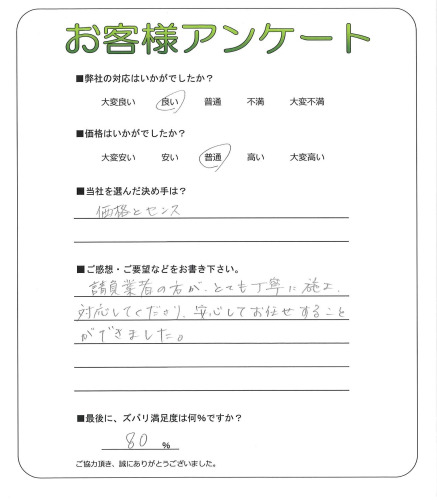 お客様アンケート
■弊社の対応はいかがでしたか？
大変良い 良い 普通 不満 大変不満
■価格はいかがでしたか？
大変安い 安い 普通 高い 大変高い
■当社を選んだ決め手は？
価格とセンス
■ご感想・ご要望などをお書き下さい。
請負業者の方が、とても丁寧に施工、
対応してくださり、安心してお任せすること
ができました。
■最後に、ズバリ満足度は何％ですか？
80 ％
ご協力頂き、誠にありがとうございました。